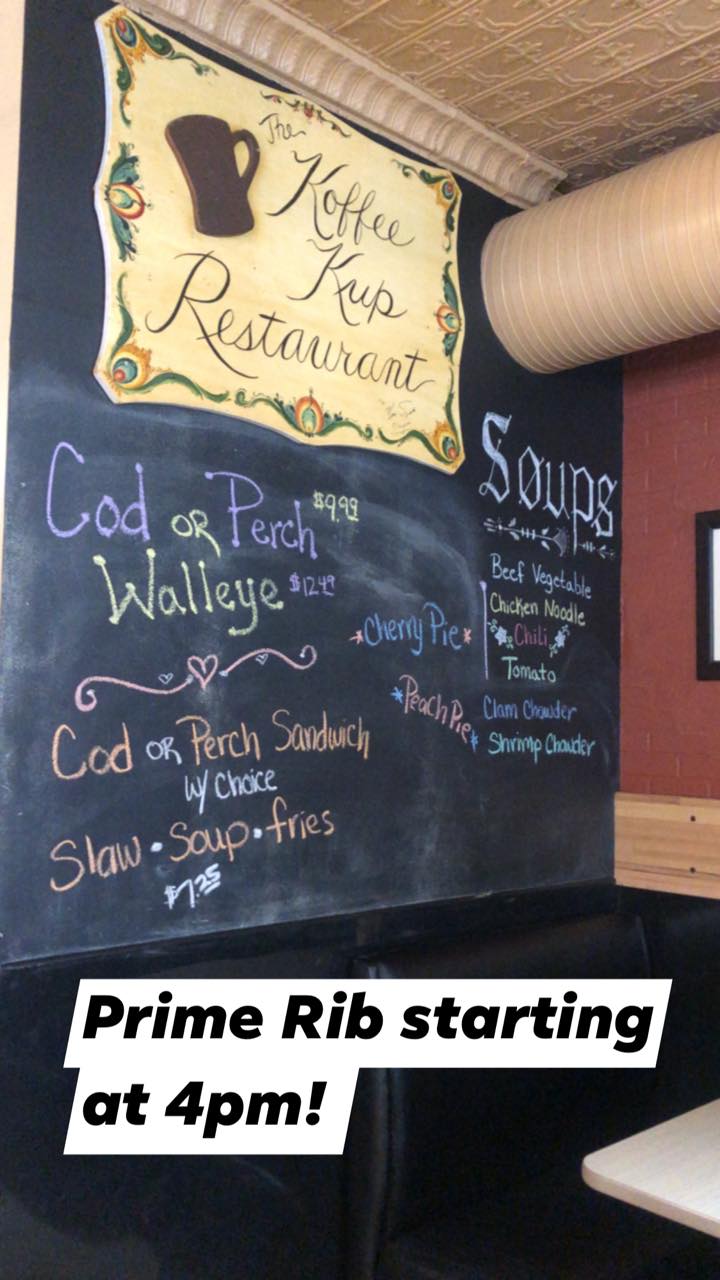 The
Koffee
Kup
Restaurant
Cod OR Perch $9.99
Walleye $12.49
Cod OR Perch Sandwich
w/ Choice
Slaw • Soup • fries
$7.25
*Cherry Pie*
*Peach Pie*
Soups
Beef Vegetable
Chicken Noodle
Chili
Tomato
Clam Chowder
Shrimp Chowder
Prime Rib starting
at 4pm!